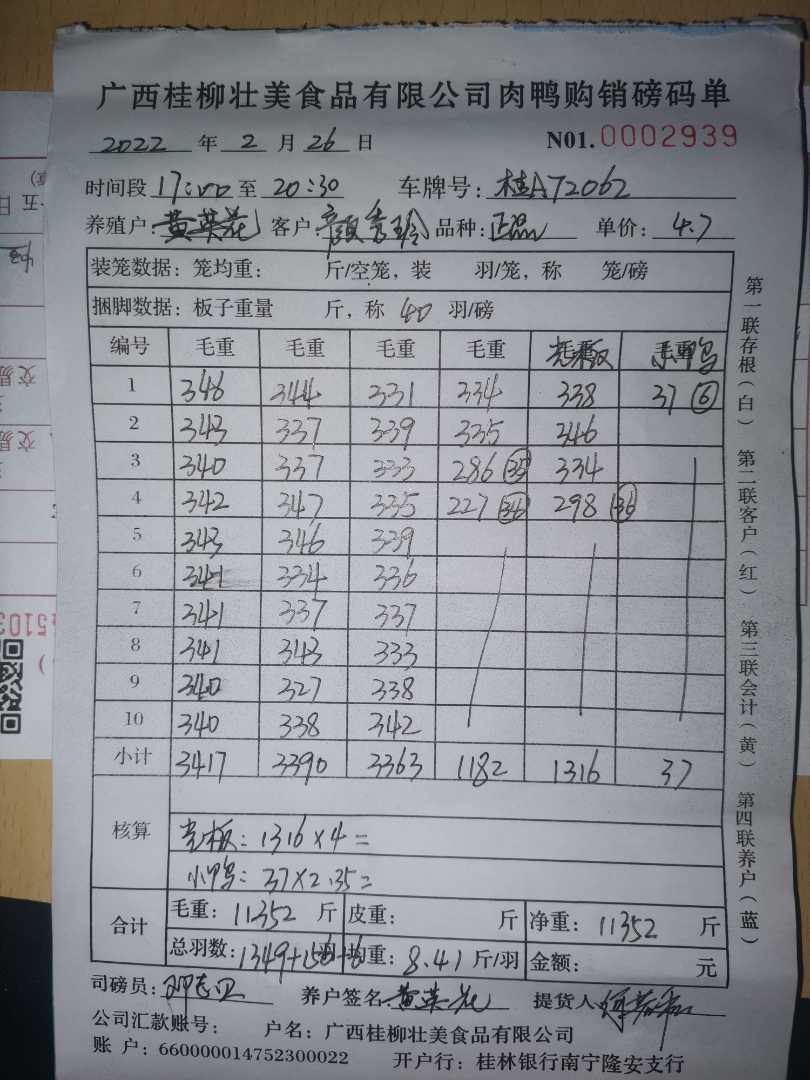 广西桂柳壮美食品有限公司肉鸭购销磅码单
2022 年 2 月 26 日 N01. 0002939
时间段 17:00 至 20:30 车牌号: 桂A72062
养殖户: 黄英花 客户: 颜秀玲 品种: 正品 单价: 4.7
装笼数据: 笼均重: 斤/空笼, 装 羽/笼, 称 笼/磅
捆脚数据: 板子重量 斤, 称 40 羽/磅
编号 毛重 毛重 毛重 毛重 光板 小鸭
1 346 344 331 334 338 37 ⑥
2 343 337 339 335 346
3 340 337 333 286 35 334
4 342 347 335 227 298 36
5 343 346 339
6 341 334 336
7 341 337 337
8 341 343 333
9 340 327 338
10 340 338 342
小计 3417 3390 3363 1182 1316 37
核算
光板: 1316×4=
小鸭: 37×2.35=
合计 毛重: 11352 斤 皮重: 斤 净重: 11352 斤
总羽数: 1349+156+6 均重: 8.41 斤/羽 金额: 元
司磅员: 养户签名 黄英花 提货人
公司汇款账号: 户名: 广西桂柳壮美食品有限公司
账 户: 660000014752300022 开户行: 桂林银行南宁隆安支行
第一联存根(白) 第二联客户(红) 第三联会计(黄) 第四联养户(蓝)